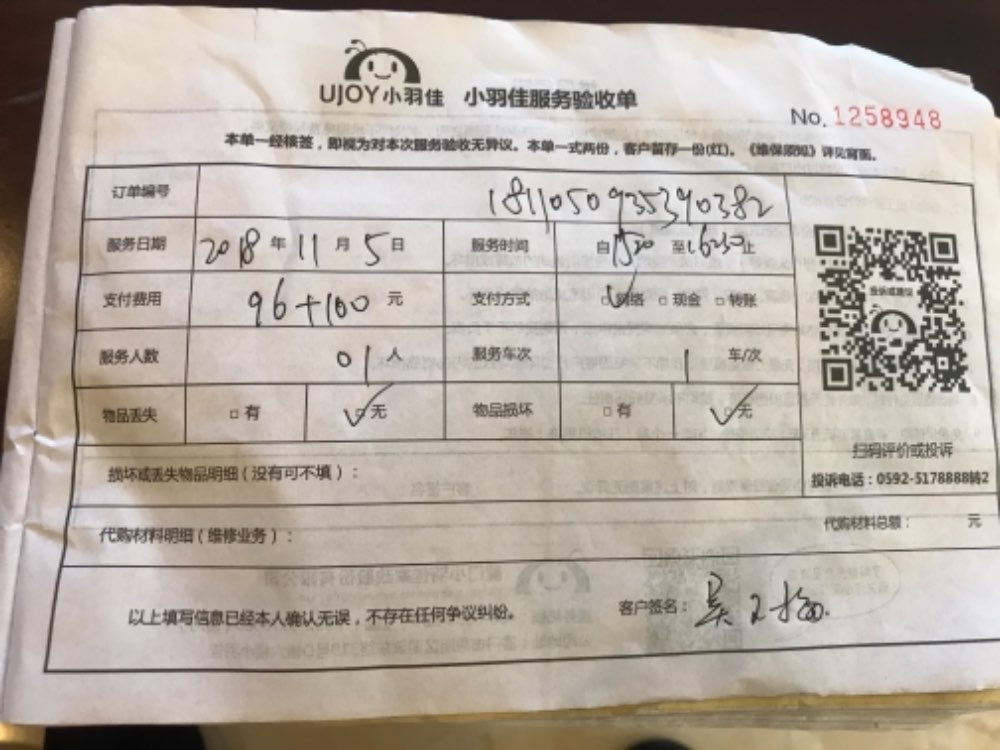 UJOY小羽佳 小羽佳服务验收单
No. 1258948
本单一经核签，即视为对本次服务验收无异议。本单一式两份，客户留存一份(红)。《维保须知》详见背面。
订单编号 1811050935390382
服务日期 2018 年 11 月 5 日 服务时间 自 1530 至 1630 止
支付费用 96+100 元 支付方式 ☑网络 □现金 □转账
服务人数 01 人 服务车次 1 车/次
物品丢失 □有 ☑无 物品损坏 □有 ☑无
投诉或建议
扫码评价或投诉
投诉电话：0592-5178888转2
损坏或丢失物品明细（没有可不填）：
代购材料明细（维修业务）： 代购材料总额： 元
以上填写信息已经本人确认无误，不存在任何争议纠纷。 客户签名： 吴